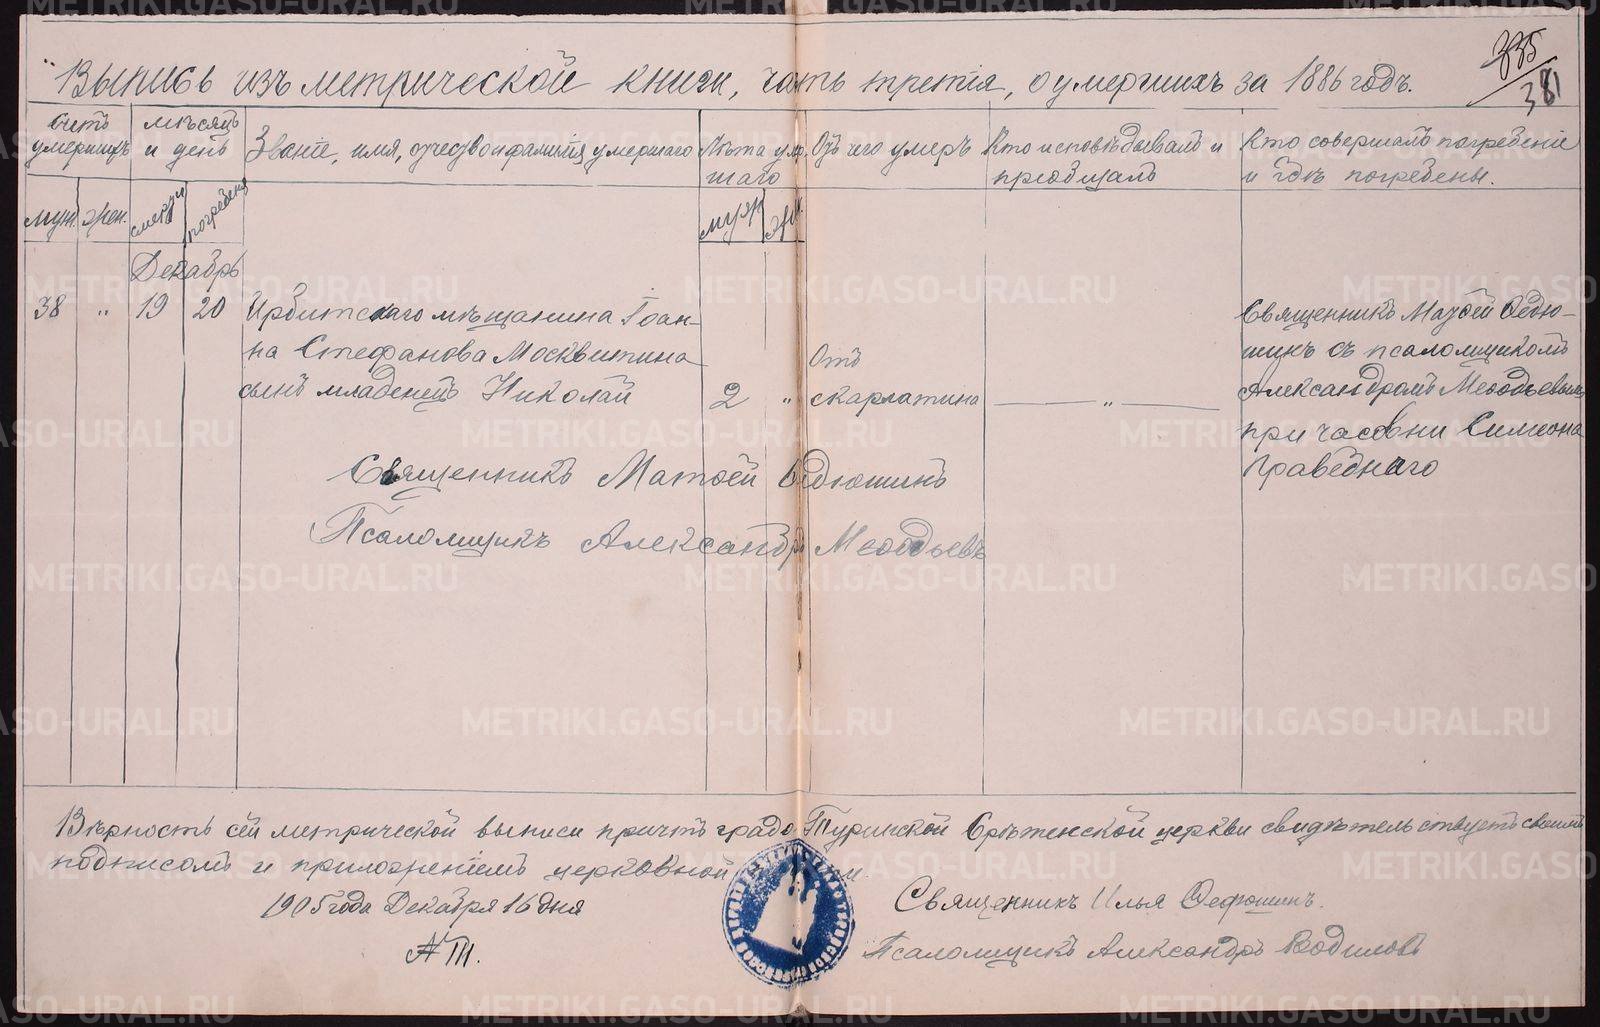 Выпись изъ метрической книги, часть третія, о умершихъ за 1886 годъ.
335
381
Счетъ умершихъ
мѣсяцъ и день
Званіе, имя, отчество и фамилія умершаго
Лѣта умершаго
Отъ чего умеръ
Кто исповѣдывалъ и пріобщалъ
Кто совершалъ погребеніе и гдѣ погребены.
муж. жен.
смерти погребенія
муж жен.
Декабрь
38 „ 19 20
Ирбитскаго мѣщанина Іоан-
на Стефанова Москвитина
сынъ младенецъ Николай
2 „
Отъ
скарлатина
„
Священникъ Матѳей Ѳедю-
шинъ съ псаломщикомъ
Александромъ Меѳодьевымъ
при часовни Симеона
Праведнаго
Священникъ Матѳей Ѳедюшинъ
Псаломщикъ Александръ Меѳодьевъ
Вѣрность сей метрической выписи причтъ градо-Туринской Срѣтенской церкви свидѣтельствуетъ своимъ
подписомъ и приложеніемъ церковной
1905 года Декабря 16 дня
Священникъ Илья Ѳедюшинъ.
Псаломщикъ Александръ
METRIKI.GASO-URAL.RU